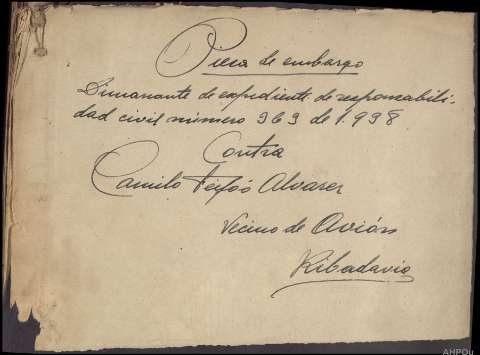 Pieza de embargo
Dimanante de expediente de responsabili-
dad civil número 369 de 1.938
Contra
Camilo Feijóo Alvarez
Vecino de Avión
Ribadavia
AHPOu